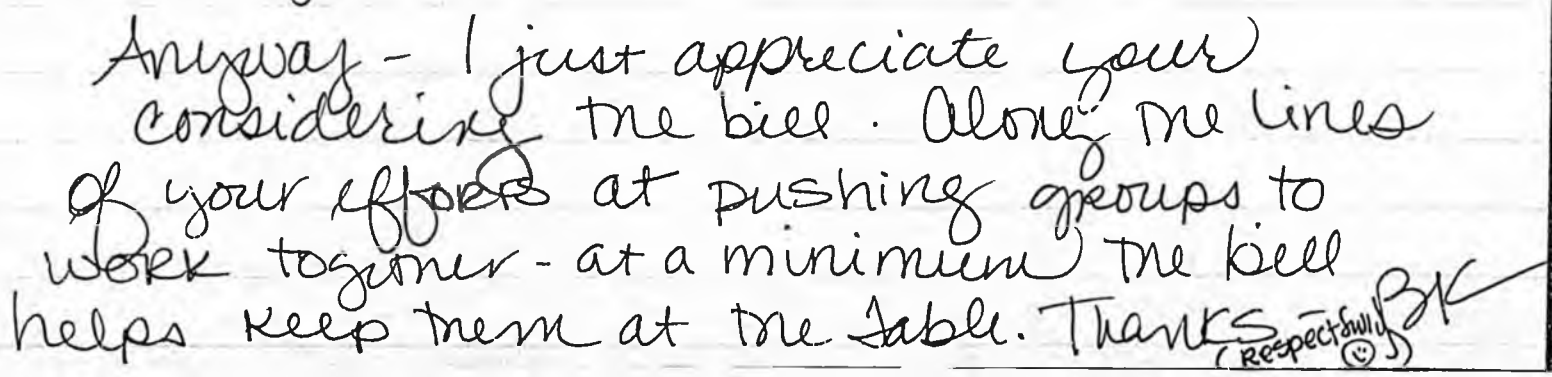 Anyway - I just appreciate your
considering the bill. Along the lines
of your efforts at pushing groups to
work together - at a minimum the bill
helps keep them at the table. Thanks - BK
(Respectfully ☺)